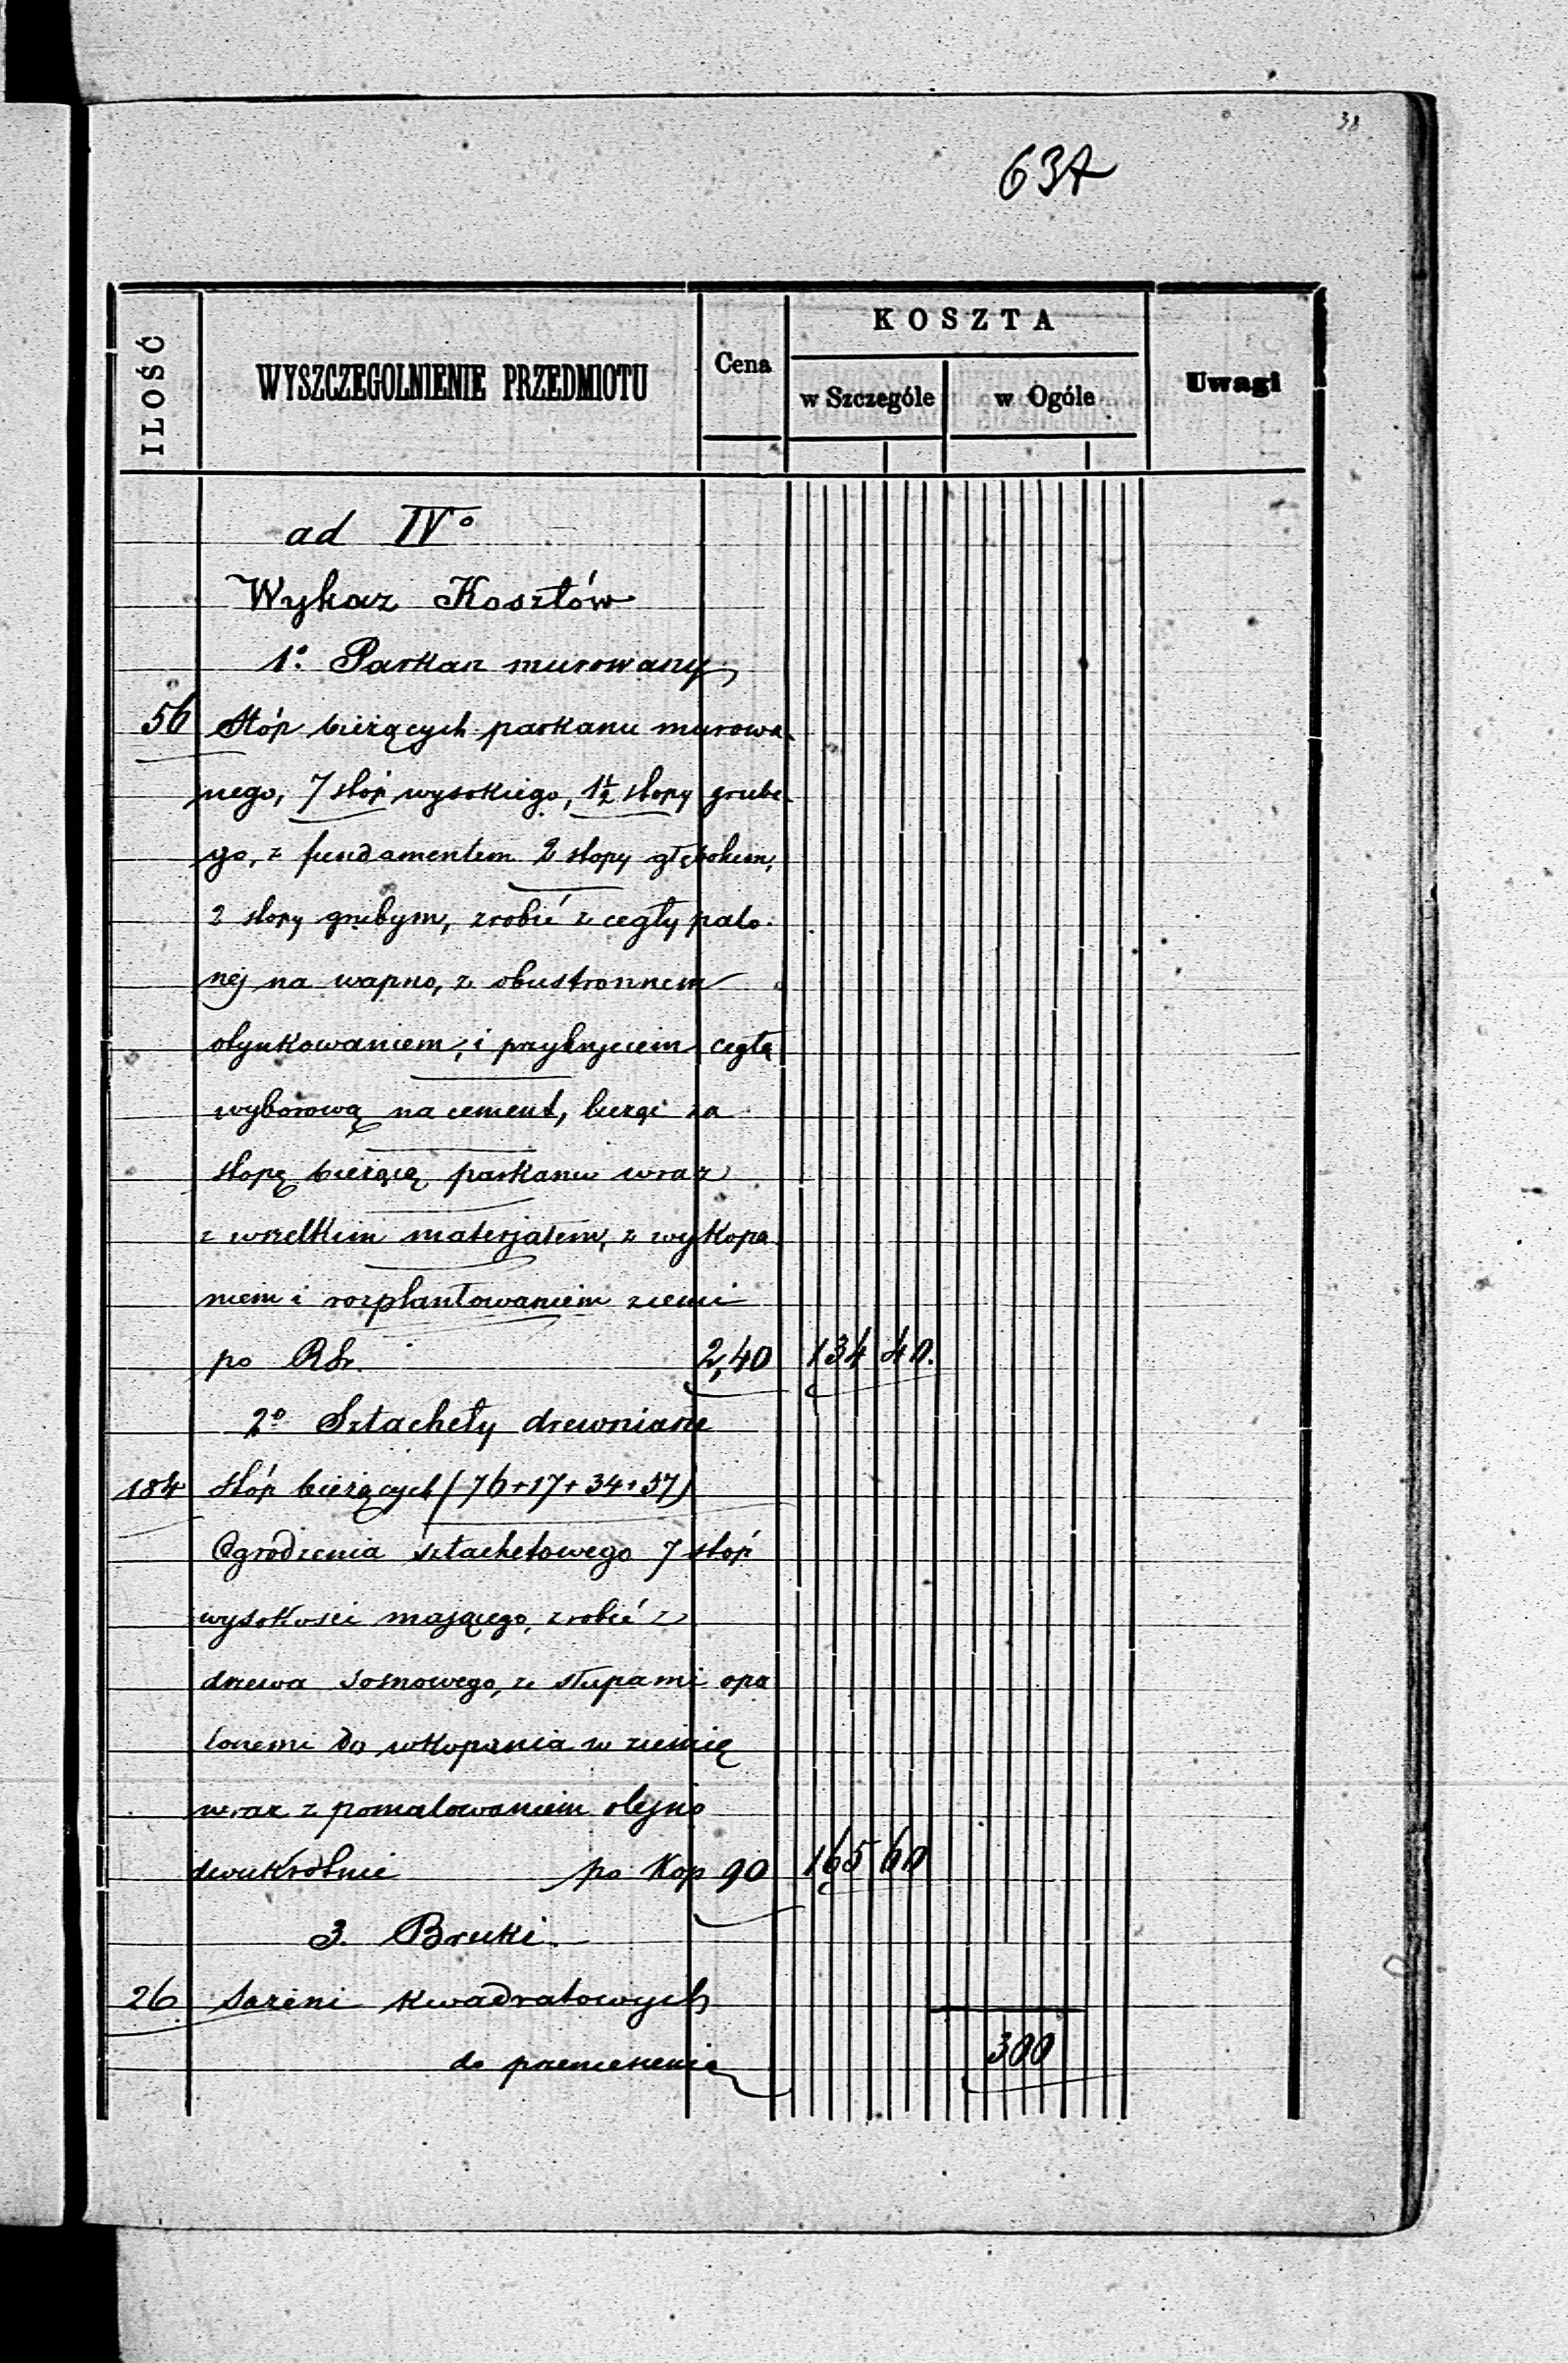 38
637
ILOŚĆ
WYSZCZEGOLNIENIE PRZEDMIOTU
Cena
KOSZTA
w Szczególe
w Ogóle
Uwagi
ad IV°
Wykaz Kosztów
1° Parkan murowany
56 Stóp bieżących parkanu murowa-
nego, 7 stóp wysokiego, 1½ stopy grube-
go, z fundamentem 2 stopy głębokiem,
2 stopy grubym, zrobić z cegły palo-
nej na wapno, z obustronnem
otynkowaniem, i przykryciem cegłą
wyborową na cement, licząc za
stopę bieżącą parkanu wraz
z wszelkim materjałem, z wykopa
niem i rozplantowaniem ziemi
po RSr. 2,40 134 40.
2° Sztachety drewniane
184 stóp bieżących (76+17+34+57)
Ogrodzenia sztachetowego 7 stóp
wysokości mającego, zrobić z
drzewa sosnowego, ze słupami opa
lonemi do wkopania w ziemię
wraz z pomalowaniem olejno
dwukrotnie po Kop 90 165 60
3. Bruki.
26 Sążeni kwadratowych
do przeniesienia 300